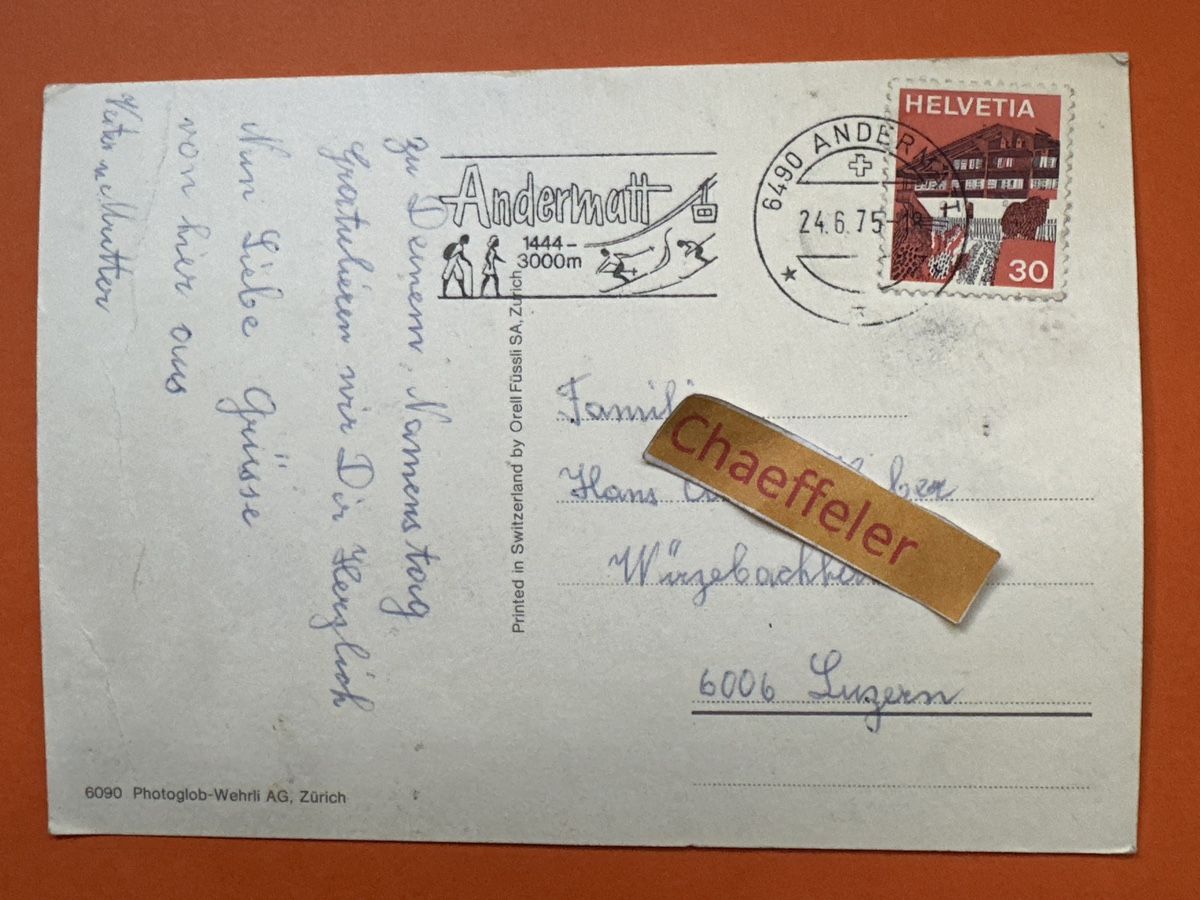 Zu Deinem Namenstag
Gratulieren wir Dir Herzlich
Nun Liebe Grüsse
von hier aus
Vater u Mutter
Andermatt
1444 –
3000m
6490 ANDERMATT
24.6.75-18
HELVETIA
30
Printed in Switzerland by Orell Füssli SA, Zürich
Chaeffeler
Hans
6006 Luzern
6090 Photoglob-Wehrli AG, Zürich